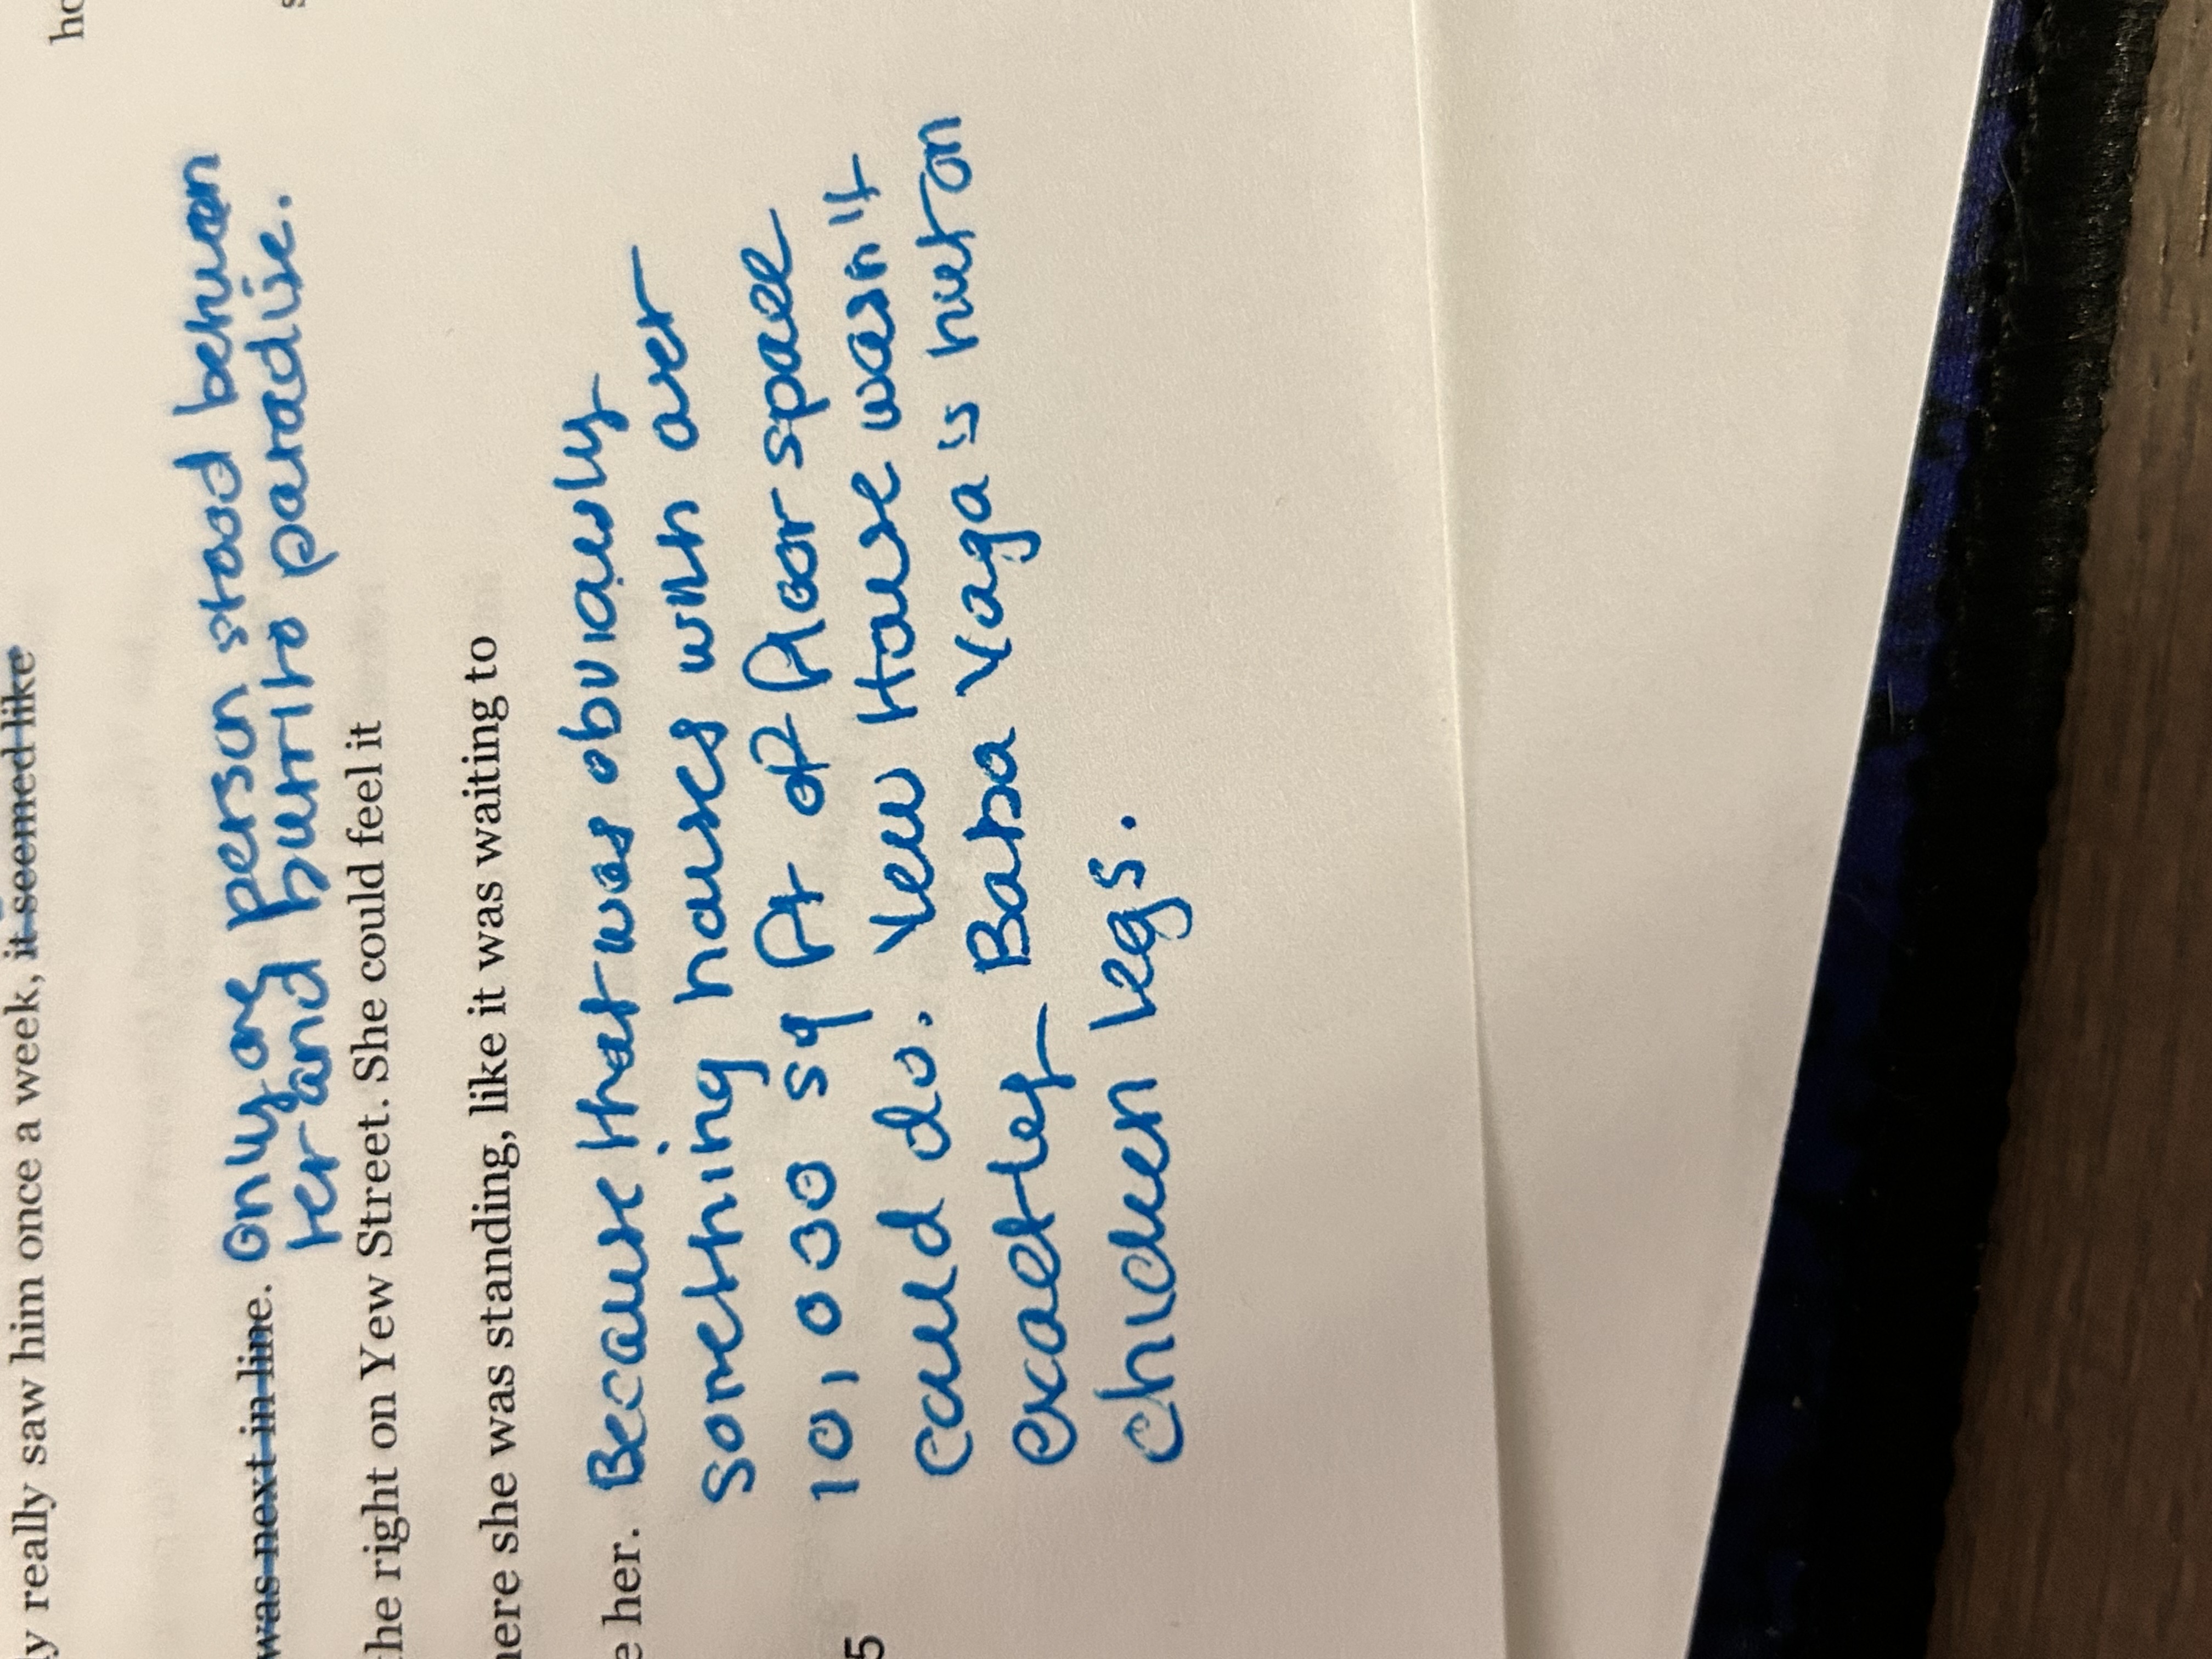 ho
s
ly really saw him once a week, it seemed like
was next in line. Only one person stood between
her and burrito paradise.
the right on Yew Street. She could feel it
here she was standing, like it was waiting to
e her. Because that was obviously
something houses with over
10,030 sq ft of floor space
could do. Yew House wasn't
exactly Baba Yaga's hut on
chicken legs.
5